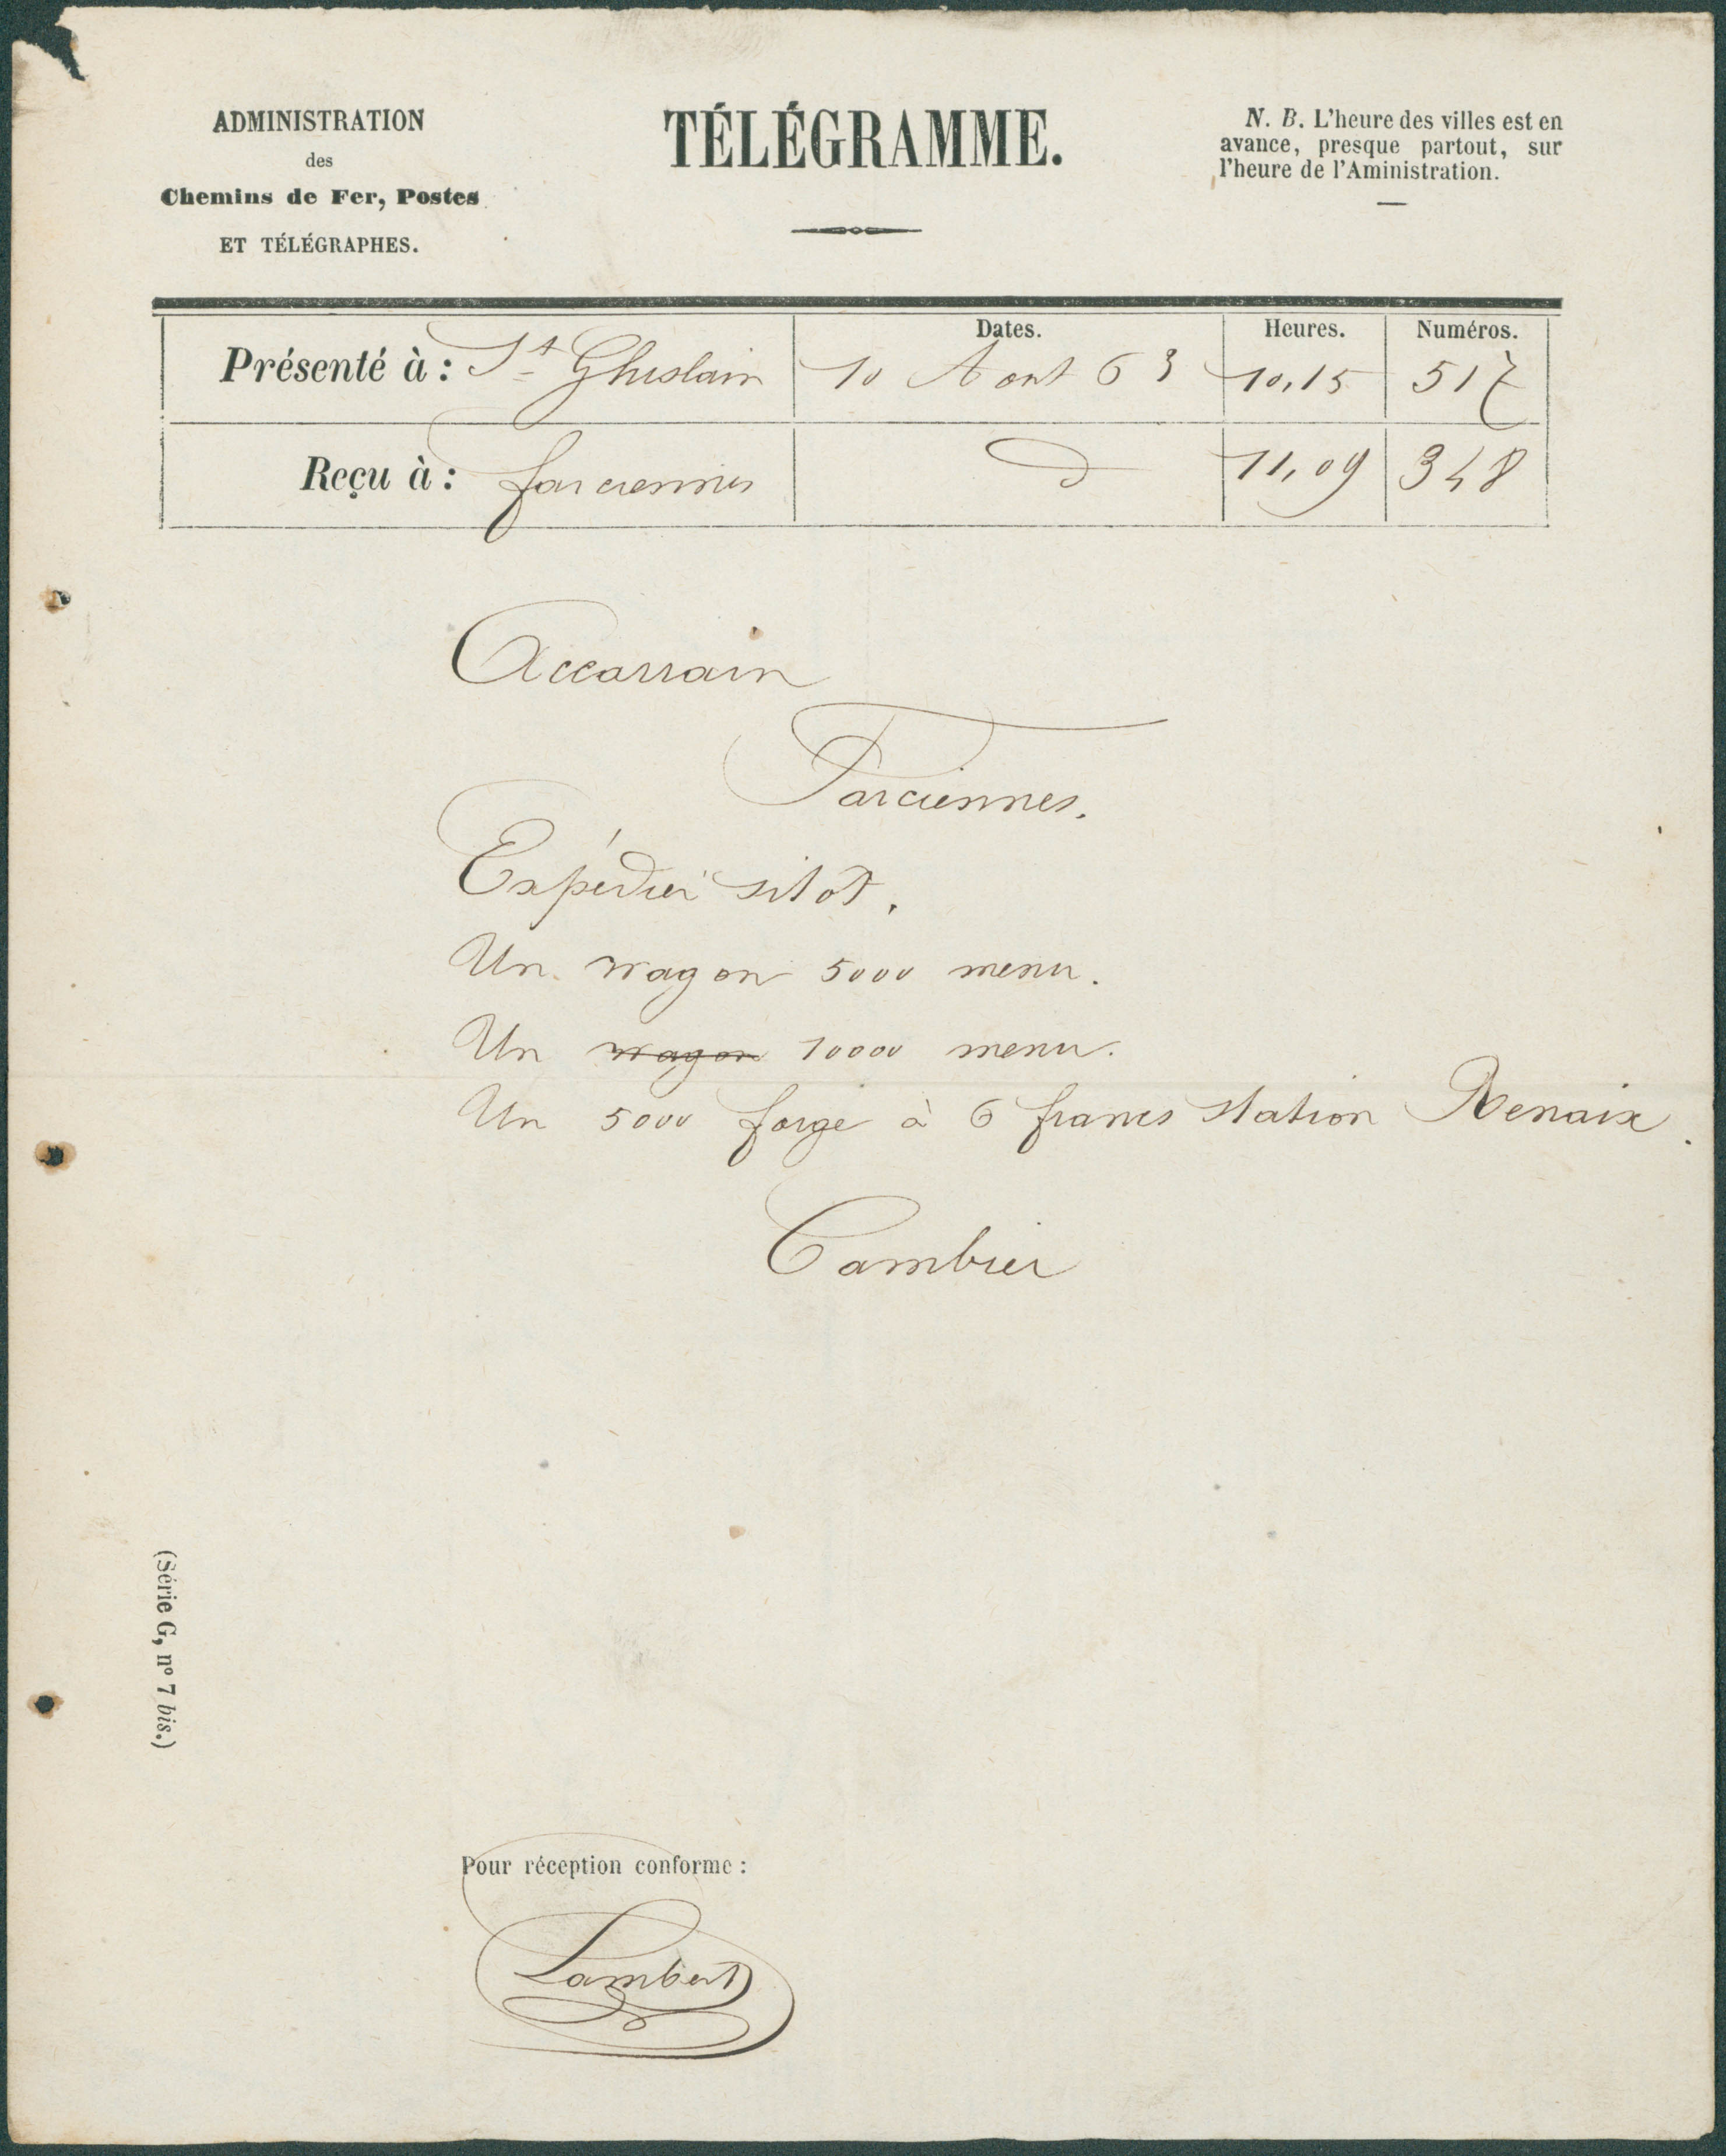 ADMINISTRATION
des
Chemins de Fer, Postes
ET TÉLÉGRAPHES.
TÉLÉGRAMME.
N. B. L'heure des villes est en
avance, presque partout, sur
l'heure de l'Aministration.
Dates. Heures. Numéros.
Présenté à : St Ghislain 10 Aout 63 10,15 517
Reçu à : farciennes d 11,09 348
Accarrain
Farciennes.
Expédier sitot.
Un wagon 5000 menu.
Un wagon 10000 menu.
Un 5000 forge à 6 francs station Renaix.
Cambier
(Série G, nº 7 bis.)
Pour réception conforme :
Lambert